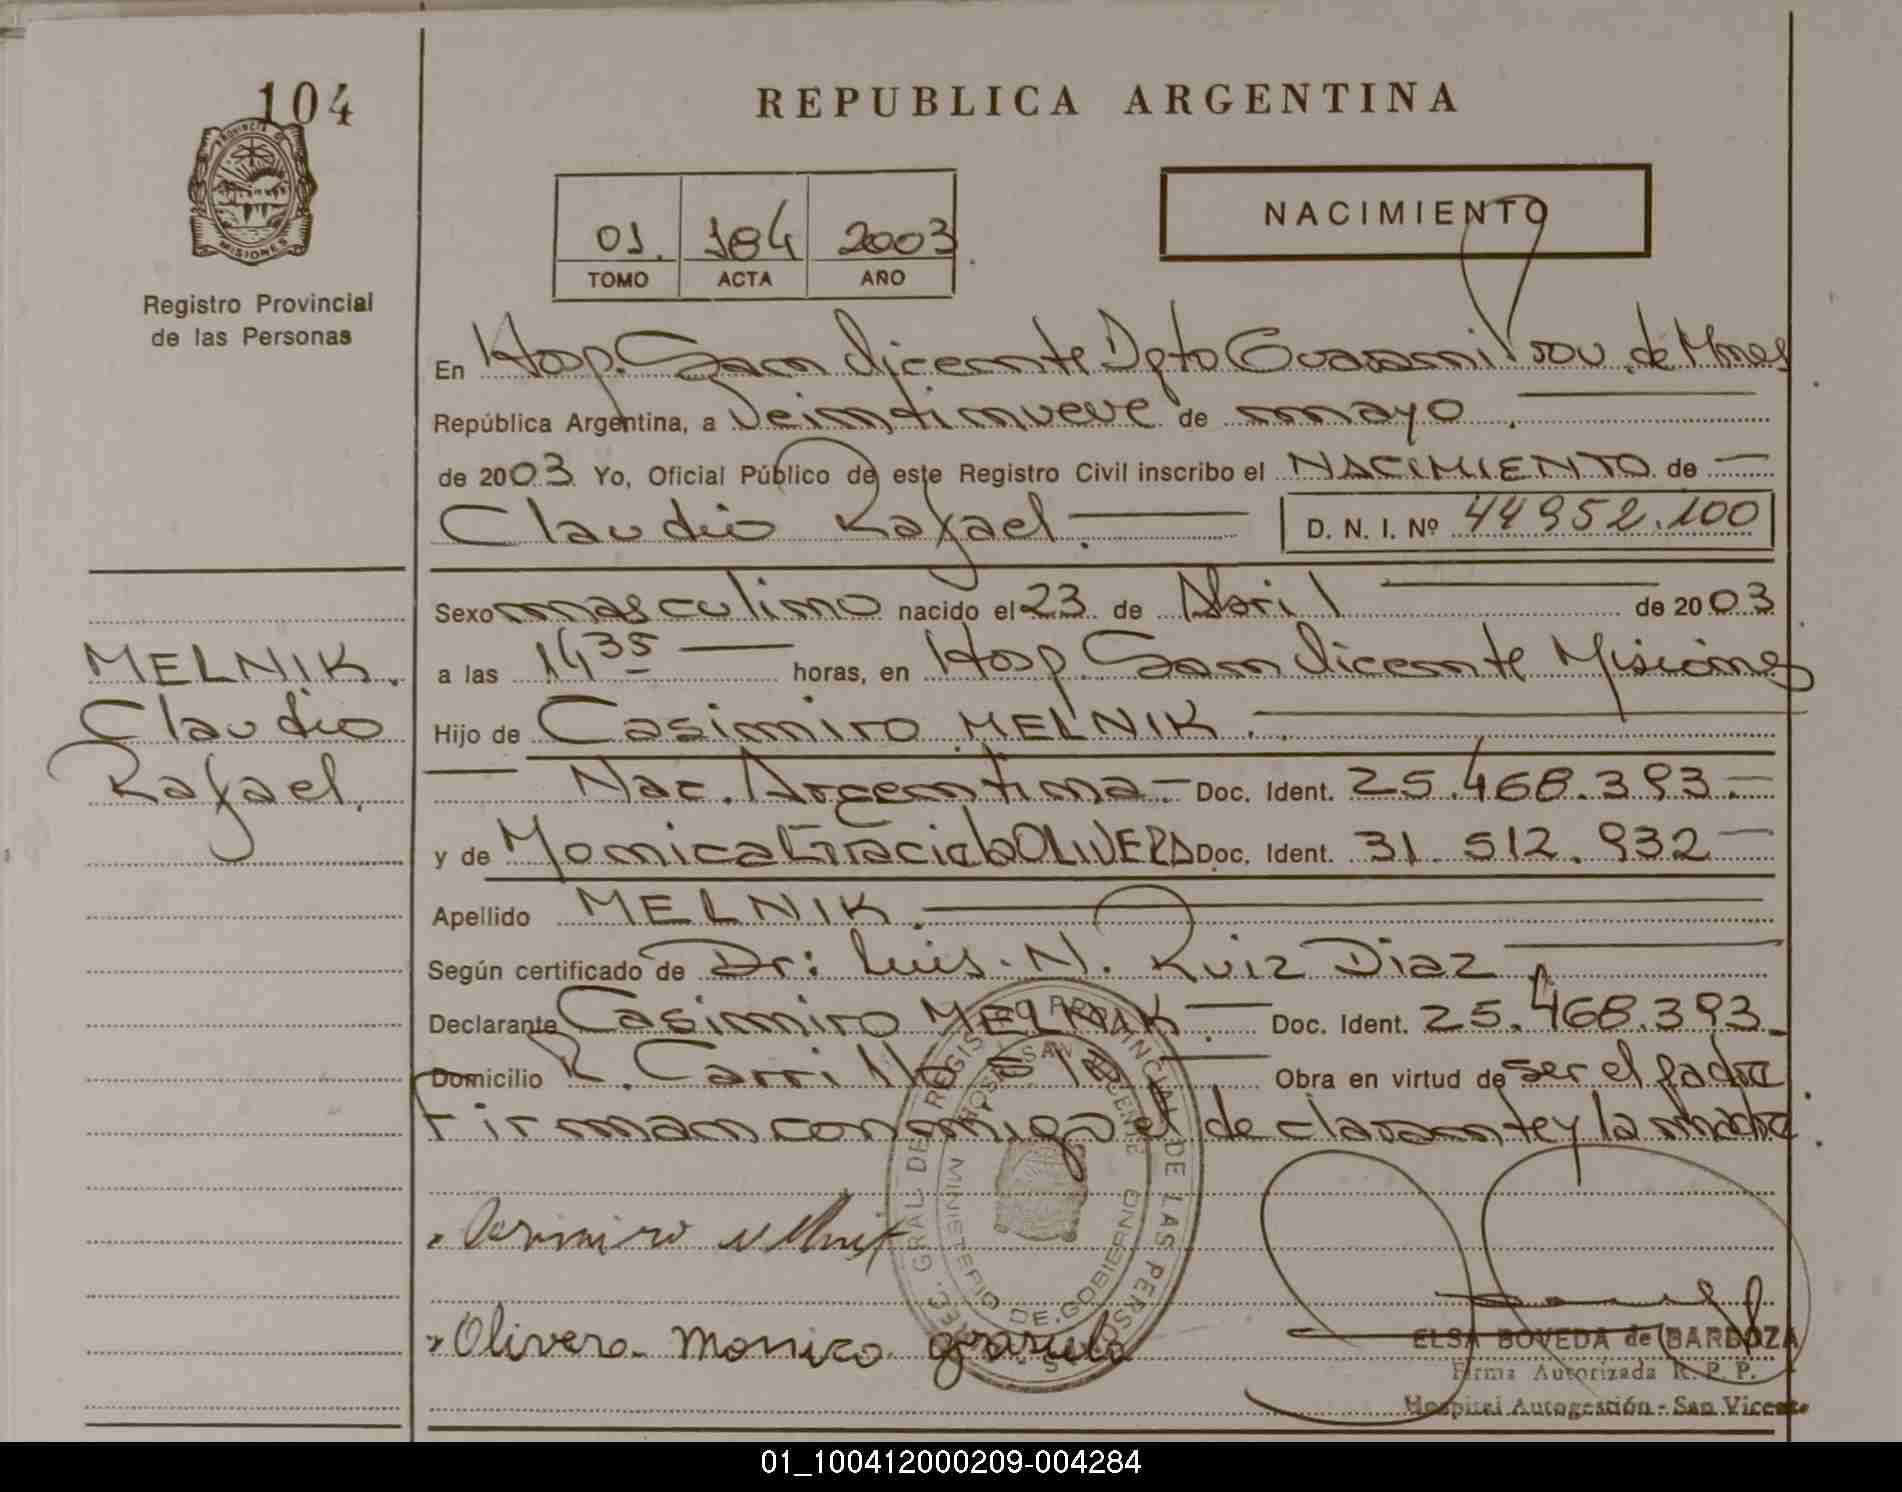 104
PROVINCIA DE
MISIONES
Registro Provincial
de las Personas
REPUBLICA ARGENTINA
01. 184 2003
TOMO ACTA AÑO
NACIMIENTO
En Hosp. San Vicente Dpto Guarani Prov. de Mnes
República Argentina, a veintinueve de mayo
de 2003 Yo, Oficial Público de este Registro Civil inscribo el NACIMIENTO de
Claudio Rafael. D. N. I. Nº 44952.100
Sexo masculino nacido el 23 de Abril de 2003
a las 14 35 horas, en Hosp. San Vicente Misiones
MELNIK.
Claudio
Rafael.
Hijo de Casimiro MELNIK.
Nac. Argentina - Doc. Ident. 25.468.393.-
y de Monica Graciela OLIVERA Doc. Ident. 31.512.932
Apellido MELNIK.
Según certificado de Dr: Luis. N. Ruiz Diaz
Declarante Casimiro MELNIK Doc. Ident. 25.468.393.
Domicilio R. Carrillo Obra en virtud de ser el padre
Firman conmigo el declarante y la madre
Casimiro Melnik
Olivera Monica grasiela
MINISTERIO DE GOBIERNO
HOSP. SAN VICENTE
ELSA BOVEDA de BARBOZA
Firma Autorizada R. P. P.
Hospital Autogestión - San Vicente
01_100412000209-004284